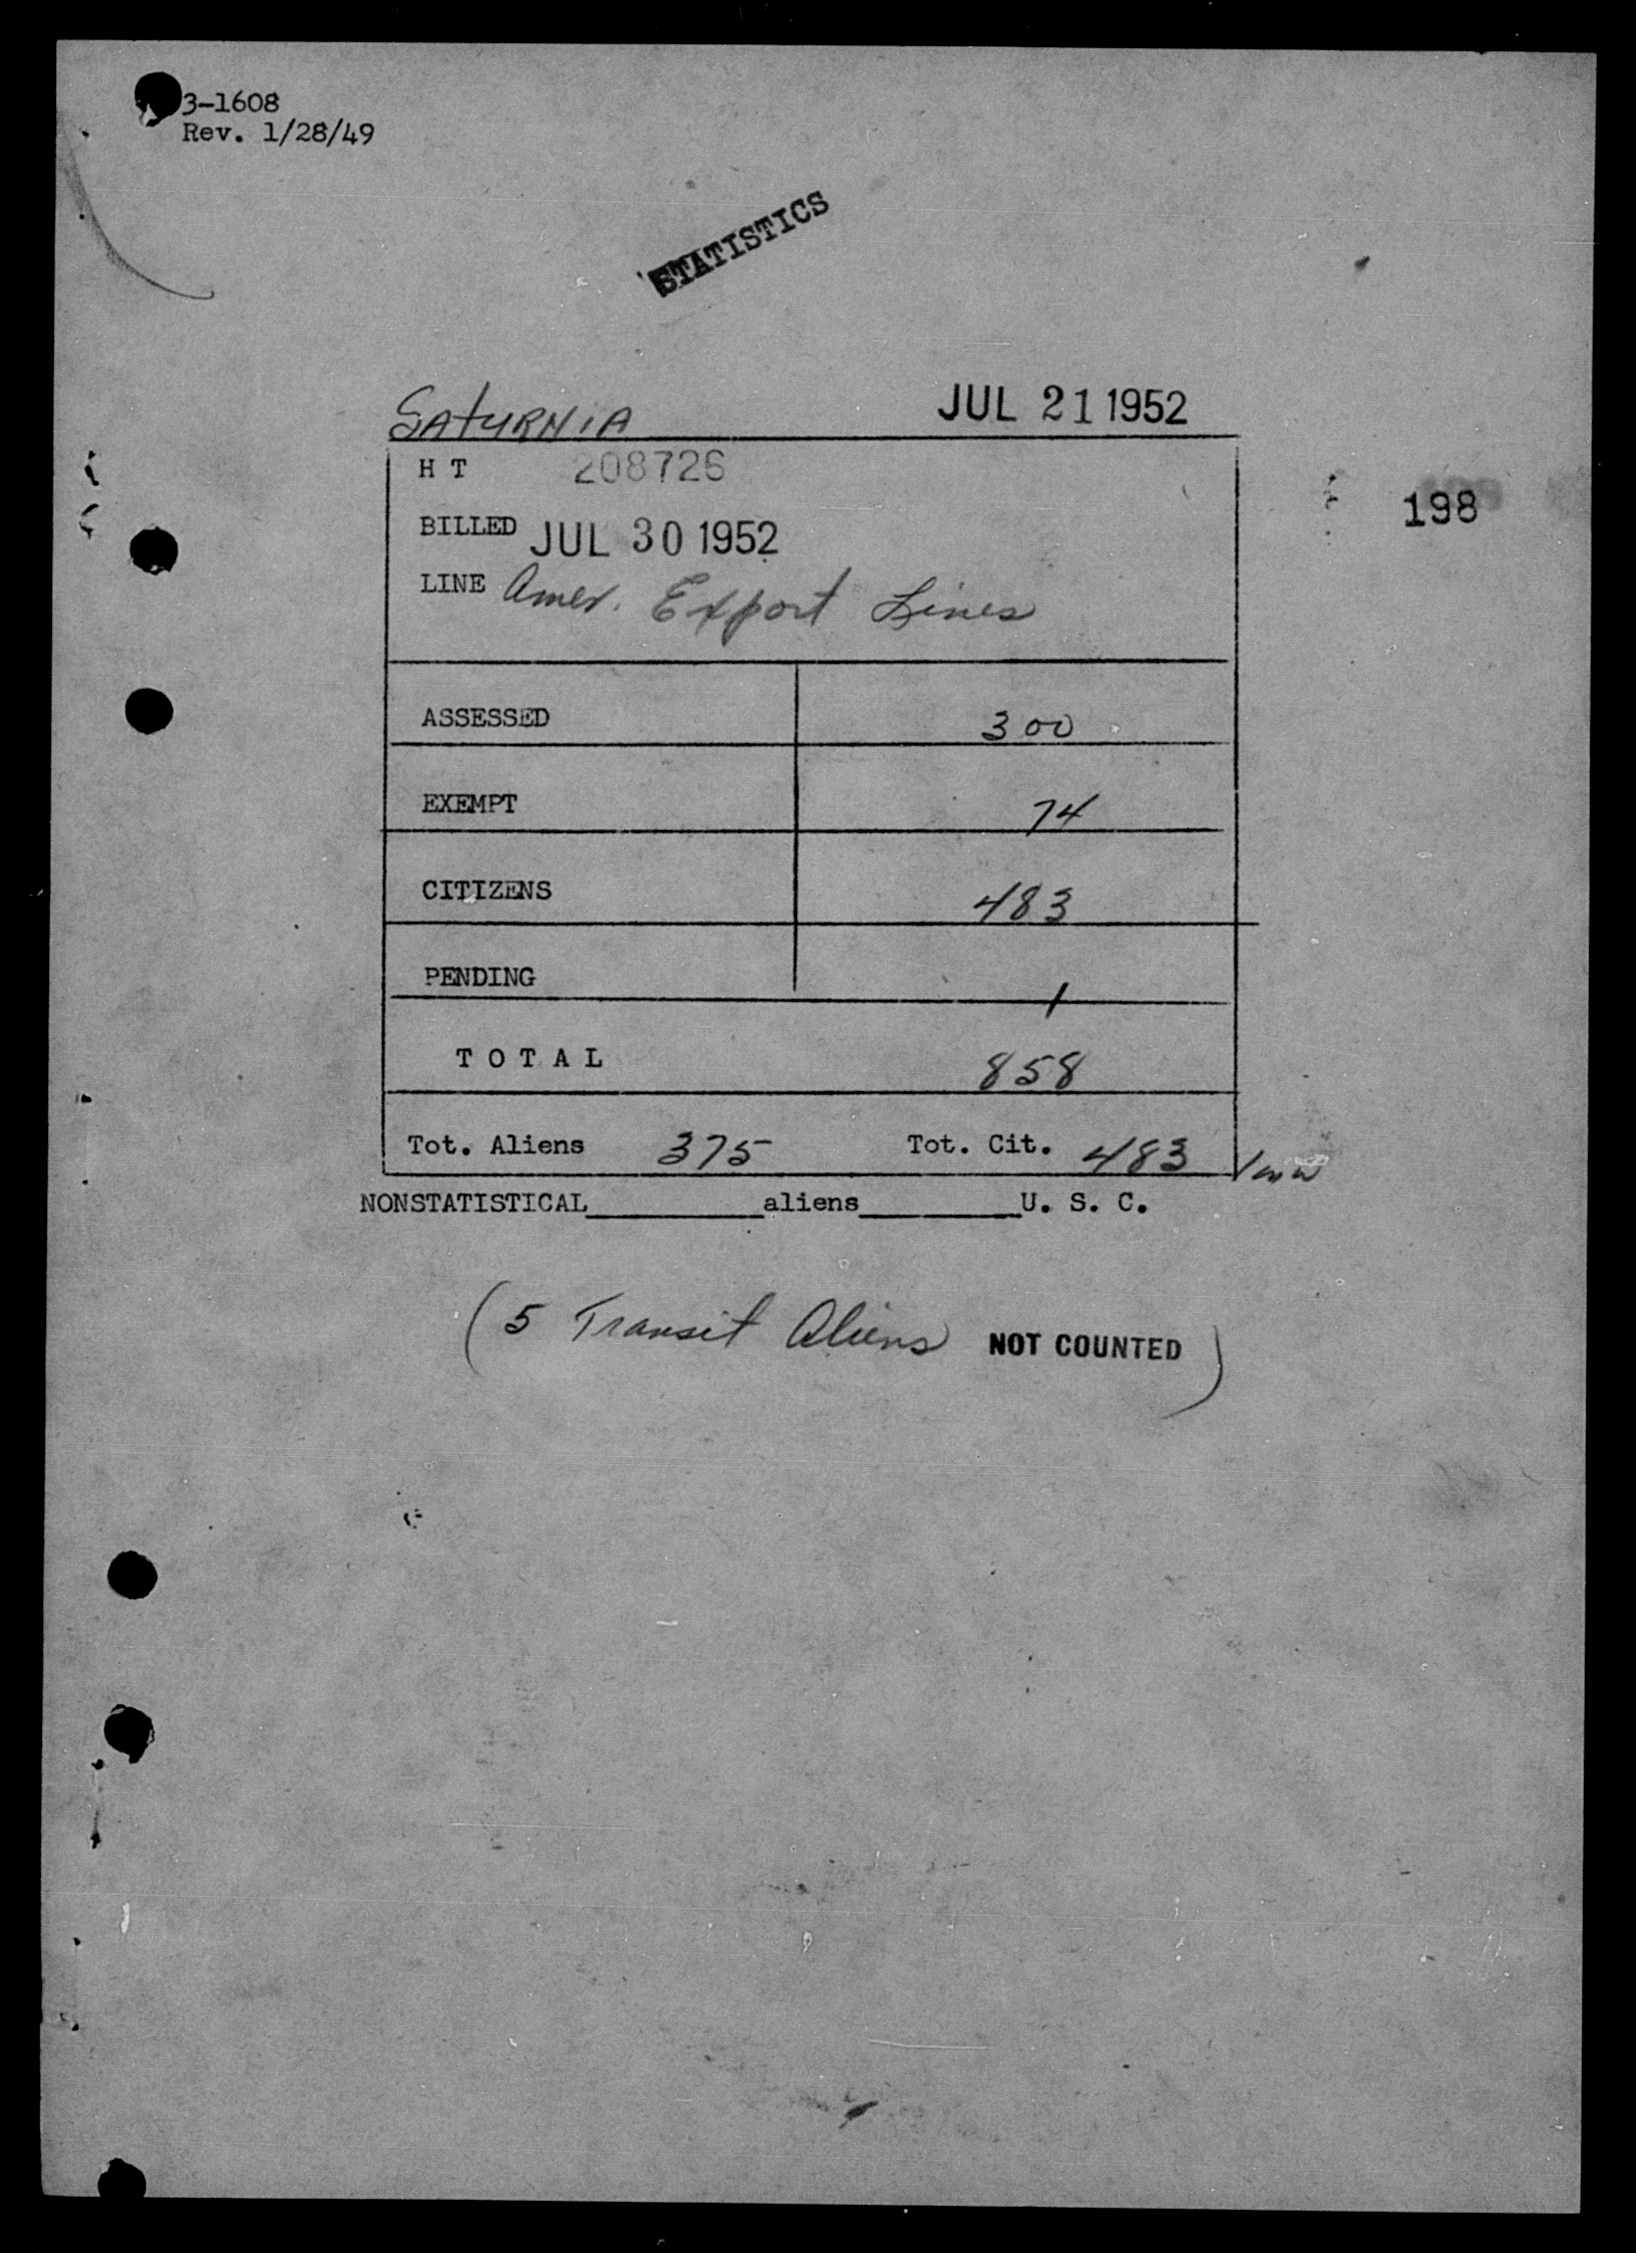 3-1608
Rev. 1/28/49
STATISTICS
SATURNIA JUL 21 1952
H T 208726
BILLED JUL 30 1952
198
LINE Amer. Export Lines
ASSESSED 300
EXEMPT 74
CITIZENS 483
PENDING 1
T O T A L 858
Tot. Aliens 375 Tot. Cit. 483
NONSTATISTICAL__________aliens__________U. S. C.
(5 Transit Aliens NOT COUNTED)